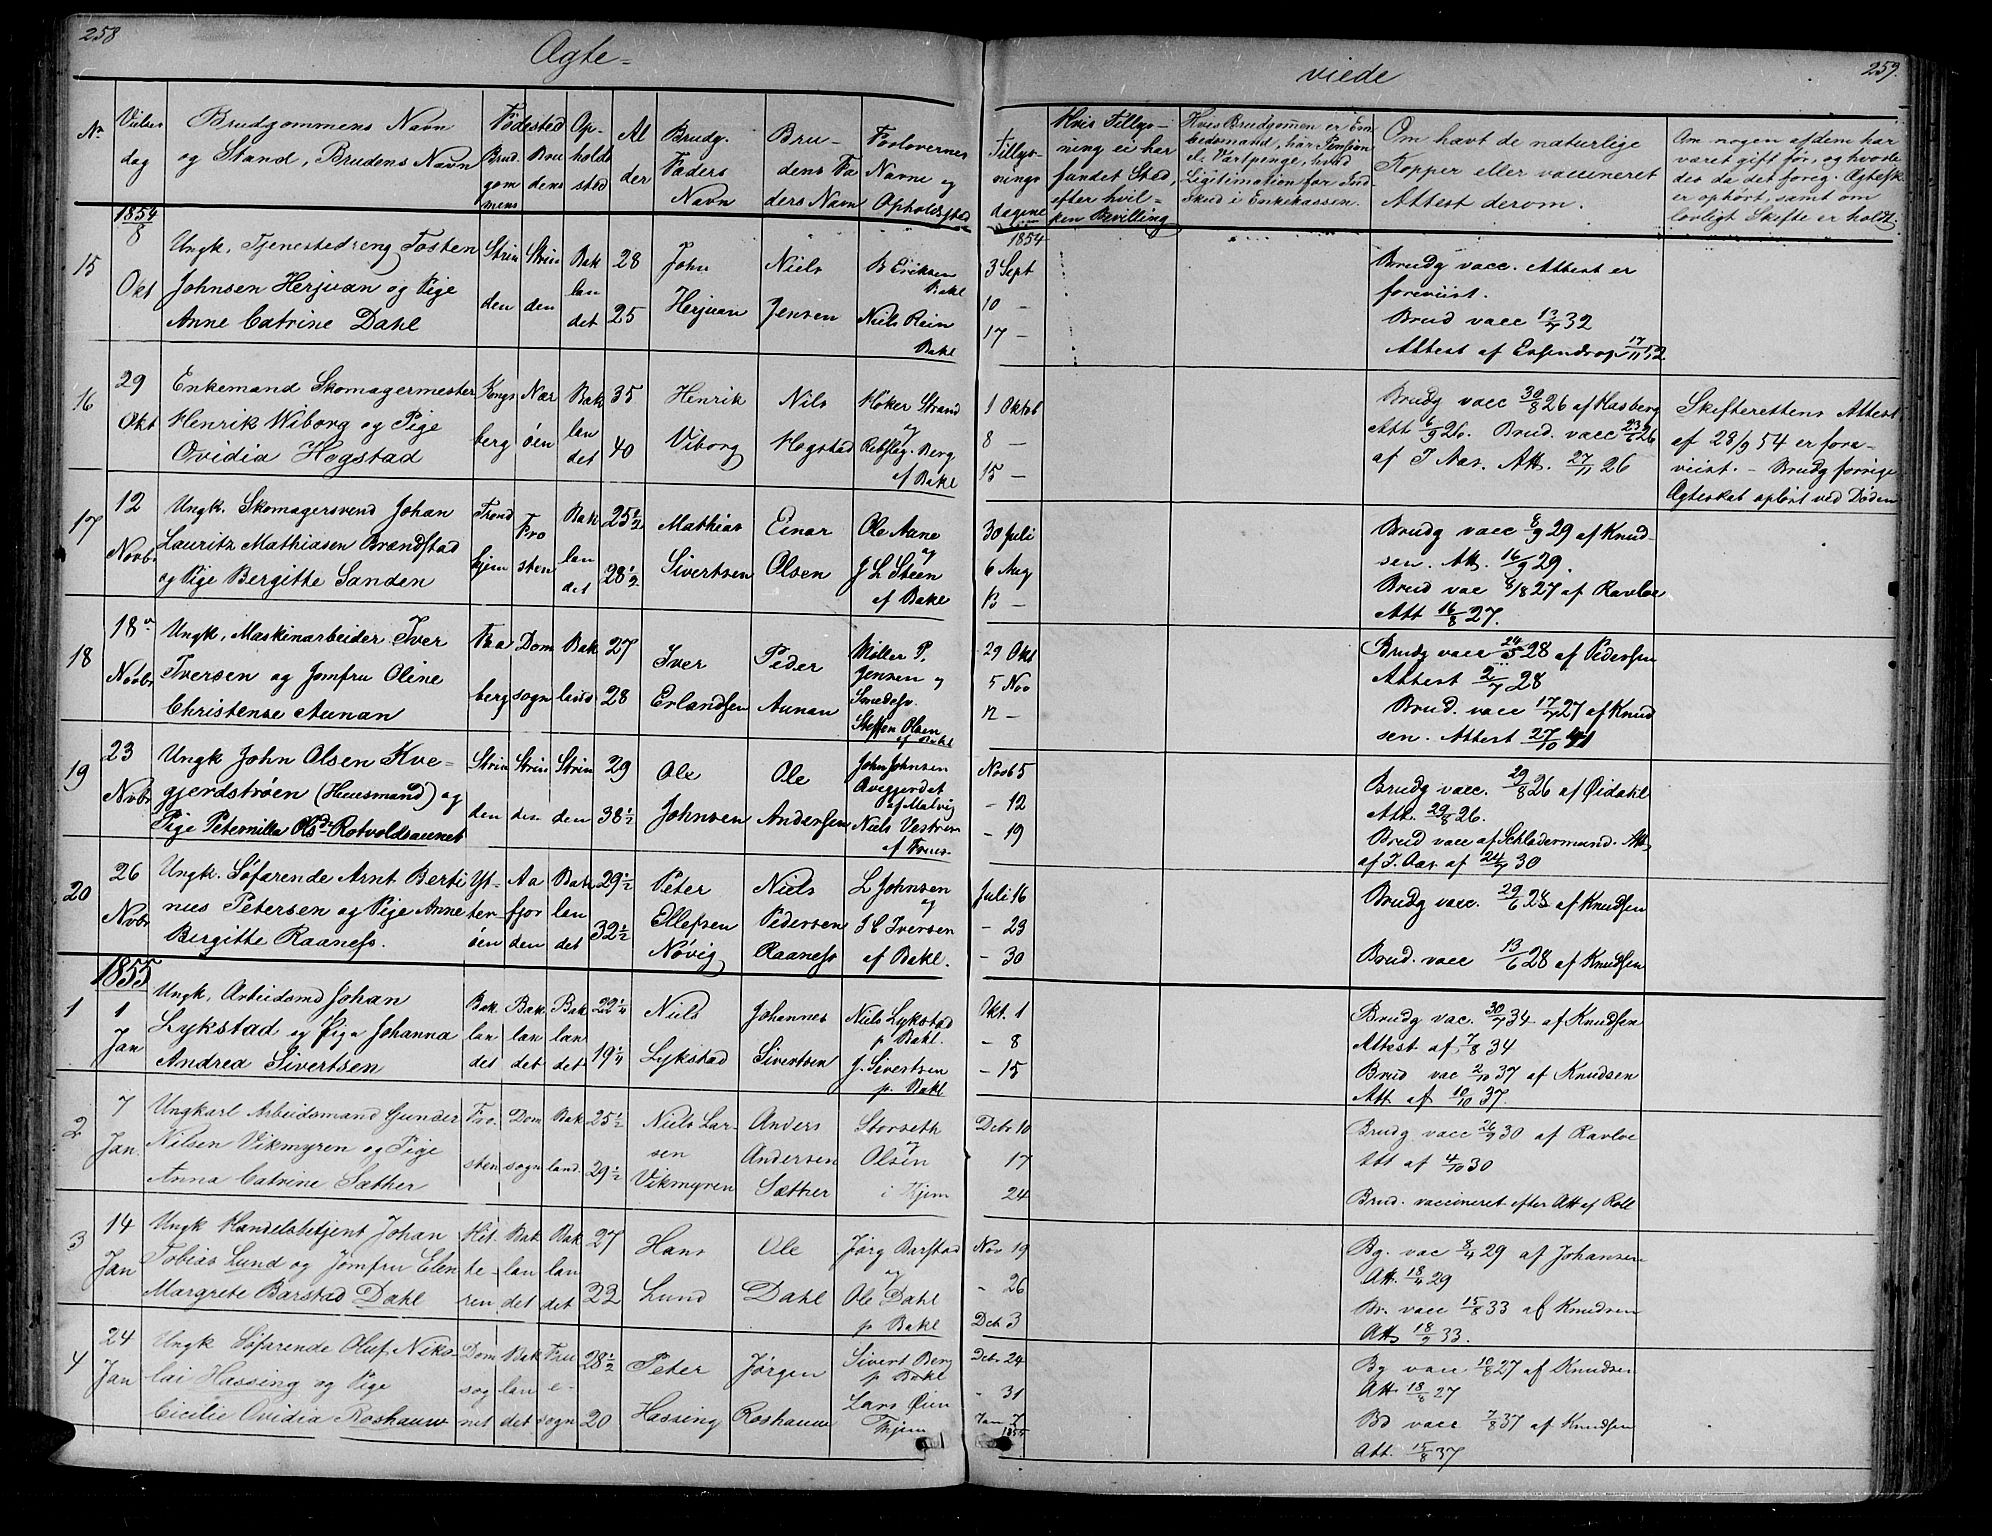 258
Ægte=
viede
259.
No
Vielses dag
Brudgommens Navn og Stand, Brudens Navn
Fødested
Brudgommens
Brudens
Opholdssted
Alder
Brudg. Faders Navn
Brudens Faders Navn
Forlovernes Navne og Opholdssted
Tillysningsdagene
Hvis Tillysning ei har fundet Sted, efter hvilken Bevilling
Hvis Brudgommen er Embedsmand, har Pension el. Vartpenge, hvad Legitimation for Indskud i Enkekassen.
Om havt de naturlige Kopper eller vaccineret Attest derom.
Om nogen af dem har været gift før, og hvorledes da det foreg. Ægtesk. er ophørt, samt om lovligt Skifte er holdt.
1854
15
8 Okt
Ungk, Tjenestedreng Tosten
Johnsen Herjuan og Pige
Anne Catrine Dahl
Strinden
Strinden
Baklandet
28
25
John Herjuan
Niels Jensen
B Eriksen Bakl
Niels Rein Bakl
1854
3 Sept
10 -
17 -
Brudg vacc. Attest er
foreviist.
Brud vacc 13/7 32
Attest af 17/11 52
16
29 Okt
Enkemand Skomagermester
Henrik Wiborg og Pige
Ovidia Hogstad
Kongsberg
Nærøen
Baklandet
35
40
Henrik Viborg
Nils Hogstad
Høker Strand
og
Rebslag. Berg
af Bakl
1 Oktob
8 -
15 -
Brudg vacc 30/8 26 af Hasberg
Att 6/9 26. Brud. vacc 23/6 26
af J Aas. Att. 27/11 26
Skifterettens Attest
af 28/9 54 er fore-
viist. - Brudg forrige
Ægteskab opløst ved Døden
17
12 Novbr
Ungk. Skomagersvend Johan
Lauritz Mathiasen Brændstad
og Pige Bergitte Sanden
Trondhjem
Frosten
Baklandet
25 1/2
28 1/2
Mathias Sivertsen
Einar Olsen
Ole Aane
og
J L Steen
af Bakl
30 Juli
6 Aug
13 -
Brudg vacc 8/9 29 af Knud-
sen. Att. 16/9 29.
Brud vac 8/8 27 af Ravloe
Att 16/8 27.
18
18 Novbr
Ungk, Maskinarbeider Iver
Iversen og Jomfru Oline
Christense Aunan
Faaberg
Domsogn
Bakland
27
28
Iver Erlandsen
Peder Aunan
Møller P.
Jensen og
Smedesv.
Steffen Olsen
af Bakl
29 Okt
5 Nov
12 -
Brudg vacc 24/5 28 af Pedersen
Attest 2/7 28
Brud. vacc 17/7 27 af Knud
sen. Attest 27/10 41
19
23 Novbr
Ungk John Olsen Kve-
gjerdstrøen (Huusmand) og
Pige Peternilla Olsdr Rotvoldsaunet
Strinden
Strinden
Strinden
29
38 1/2
Ole Johnsen
Ole Andersen
John Johnsen
af Malvig
Niels
Novb 5
- 12
- 19
Brudg vacc. 29/8 26 af Øidahl
Att. 29/8 26.
Brud vacc af Schladermund. Att
af J. Aas. af 24/7 30
20
26 Novbr
Ungk. Søfarende Arnt Berti
nus Petersen og Pige Anne
Bergitte Raaness.
Ytterøen
Aafjorden
Baklandet
29 1/2
32 1/2
Peter Ellefsen Nøvig
Niels Pedersen Raaness
L Johnsen
og
J C Iversen
af Bakl.
Juli 16
- 23
- 30
Brudg vacc. 29/6 28 af Knudsen
Brud. vacc 13/6 28 af Knudsen
1855
1
1 Jan
Ungk, Arbeidsmd Johan
Lykstad og Pige Johanna
Andrea Sivertsen
Baklandet
Baklandet
Baklandet
22 1/4
19 1/4
Niels Lykstad
Johannes Sivertsen
Niels Lykstad
p Bakl.
J. Sivertsen
p. Bakl
Okt. 1
- 8
- 15
Brudg vac. 30/7 34 af Knudsen
Attest af 7/8 34
Brud vac 2/10 37 af Knudsen
Att af 10/10 37.
2
7 Jan
Ungkarl Arbeidsmand Gunder
Nilsen Vikmyren og Pige
Anna Catrine Sæther
Frosten
Domsogn
Bakland.
25 1/2
29 1/2
Niels Larsen Vikmyren
Anders Andersen Sæther
Storseth
og
Olsen
i Hjem
Decbr 10
17
24
Brudg vacc 26/9 30 af Ravloe
Att af 4/10 30
Brud. vaccineret efter Att af Roll
3
14 Jan
Ungk Handelsbetjent Johan
Tobias Lund og Jomfru Elen
Margrete Barstad Dahl
Hitteren
Baklandet
Baklandet
27
22
Hans Lund
Ole Dahl
Jørg Barstad
og
Ole Dahl
p Bakl
Nov 19
- 26
Deb 3
Bg. vac 8/4 29 af Johansen
Att. 18/4 29
Br. vacc 15/8 33 af Knudsen
Att 18/9 33.
4
24 Jan
Ungk Søfarende Oluf Niko-
lai Hassing og Pige
Cicilie Ovidia Roshauw
Domsognet
Baklandet
Fruesogn
28 1/2
20
Peter Hassing
Jørgen Roshauw
Sivert Berg
p Bakl
Lars Øien
Thjem
Decbr 24
- 31
Jan 7
1855
Bg vacc 10/8 27 af Knudsen
Att 18/8 27
Bd vacc 7/8 37 af Knudsen
Att. 15/8 37